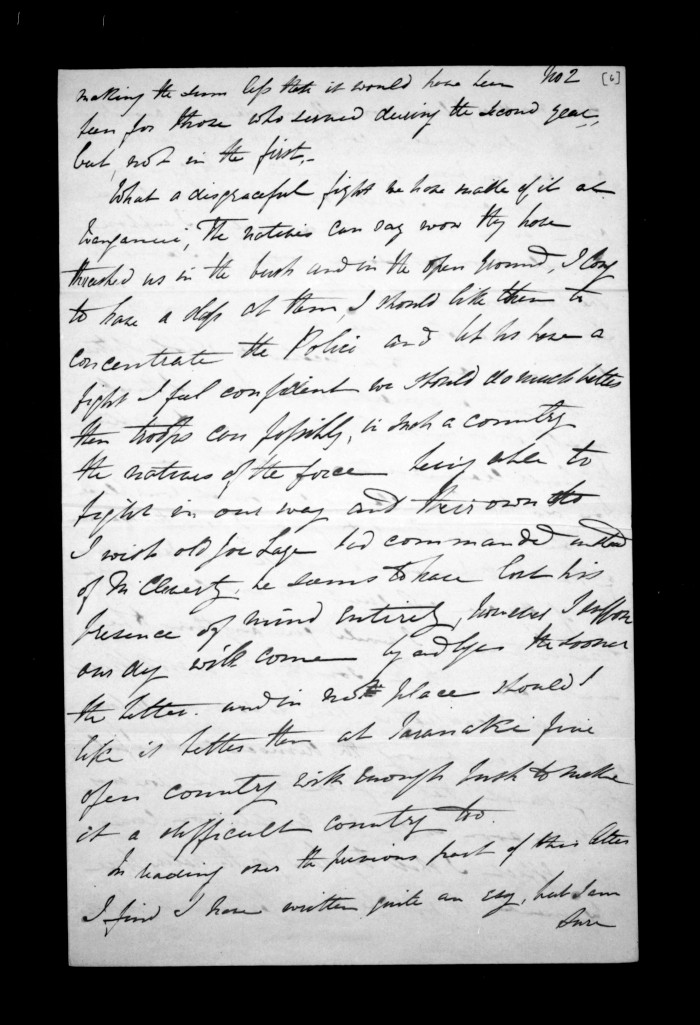 making the sum less than it would have been No 2 [6]
been for those who served during the second year,
but, not in the first,-
What a disgraceful fight we have made of it at
Wanganui, The natives can say now they have
thrashed us in the bush and in the open ground, I long
to have a slap at them, I should like them to
concentrate the Police and let us have a
fight I feel confident we should do much better
than troops can possibly, in such a country
the natives of the force being able to
fight in our way and their own too
I wish old Joe had commanded instead
of McCleverty, he seems to have lost his
presence of mind entirely, however I suppose
our day will come by and bye the sooner
the better. and in no place should I
like it better than at Taranaki fine
open country with enough bush to make
it a difficult country too.
In reading over the previous part of this letter
I find I have written quite an essay, but I am
sure